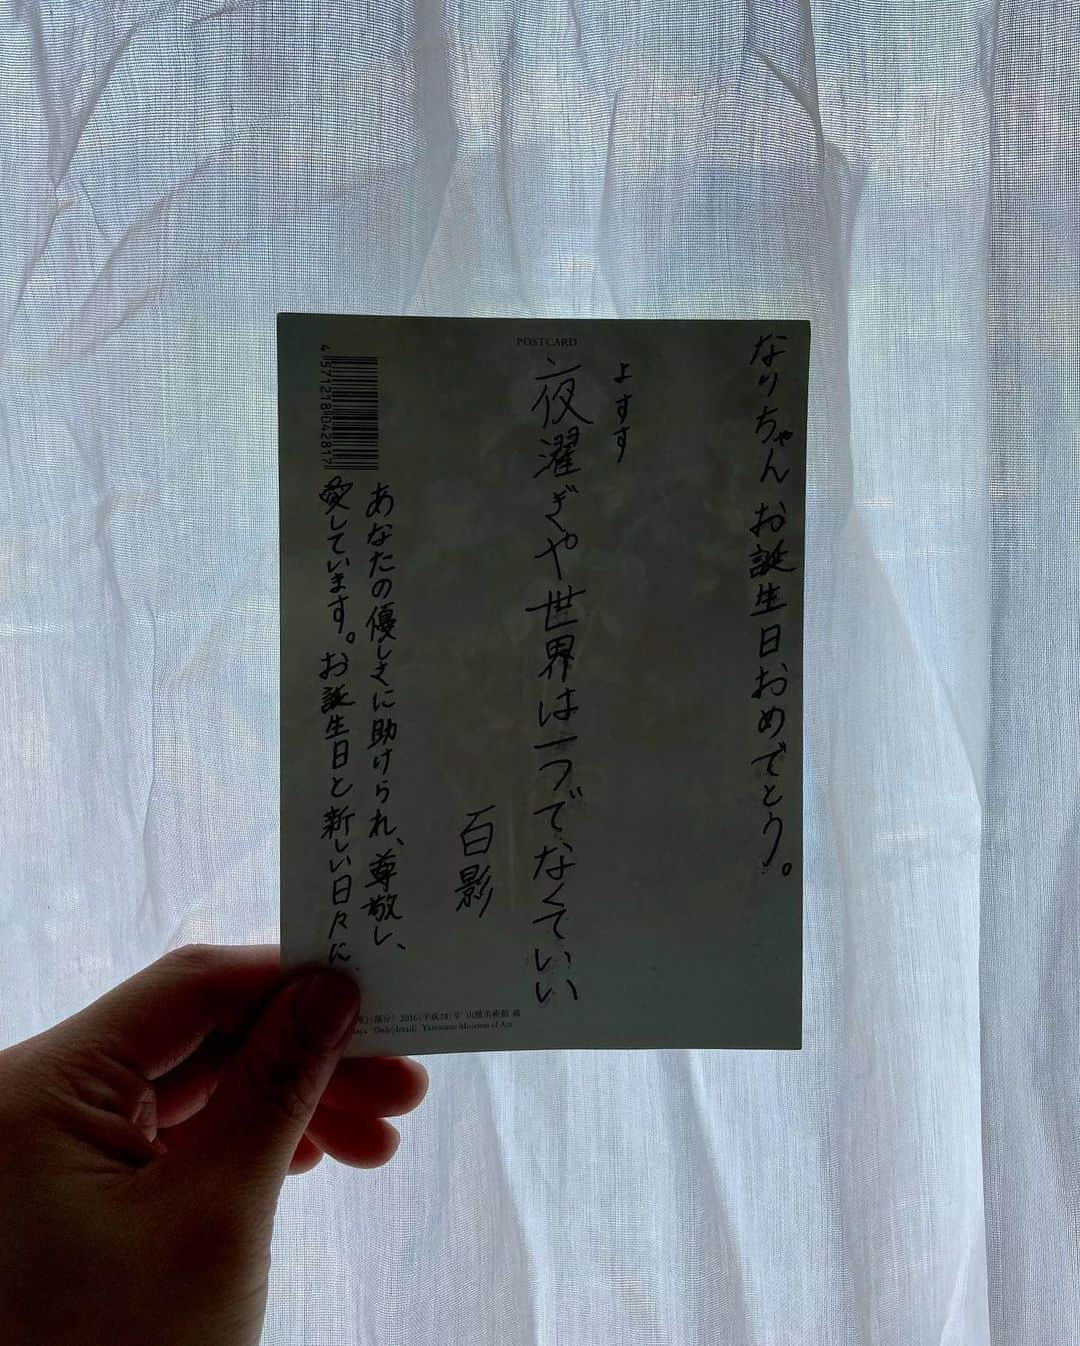 POSTCARD
なりちゃん お誕生日おめでとう。
よすす
夜濯ぎや世界は一つでなくていい
百影
あなたの優しさに助けられ、尊敬し、
愛しています。お誕生日と新しい日々に
4571218042817
(部分) 2016(平成28)年 山種美術館 蔵
Only(detail) Yamatane Museum of Art